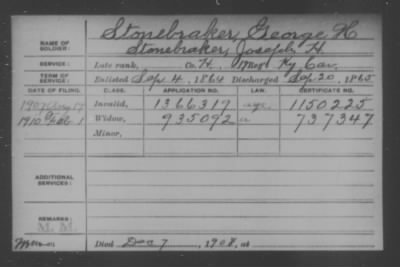 Stonebraker, George H
NAME OF SOLDIER: Stonebraker, Joseph H.
SERVICE: Late rank, Co. H, 17 Reg't Ky. Cav.
TERM OF SERVICE: Enlisted Sep. 4, 1864 Discharged Sep. 20, 1865
DATE OF FILING. CLASS. APPLICATION NO. LAW. CERTIFICATE NO.
1907 Aug 17 Invalid, 1366317 1150225
1910 Feb. 1 Widow, 935092 737347
Minor,
ADDITIONAL SERVICES:
REMARKS:
M. M.
Died Dec 7, 1908, at